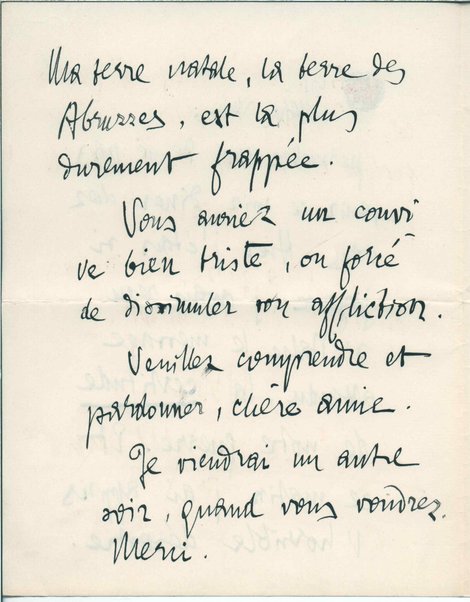 Ma terre natale, la terre des
Abruzzes, est la plus
durement frappée.
Vous auriez un convi
ve bien triste, ou forcé
de dissimuler son affliction.
Veuillez comprendre et
pardonner, chère amie.
Je viendrai un autre
soir, quand vous voudrez.
Merci.